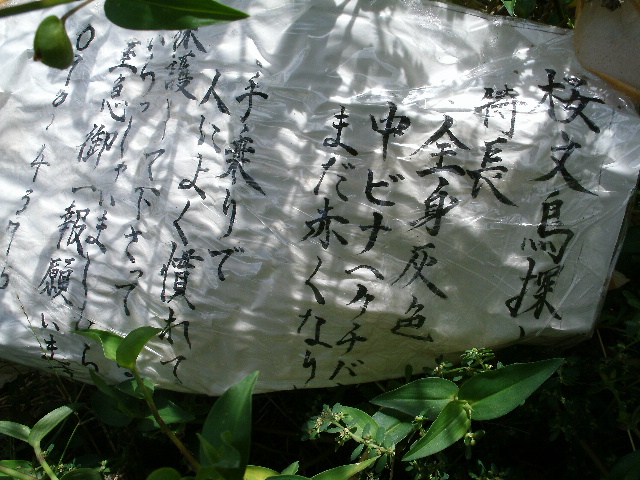 桜文鳥探
特長
全身灰色
中ビナヘクチバ
まだ赤くなり
手乗りで
人によく慣れて
保護して下さって
いらっしゃいましたら
至急御一報願いま